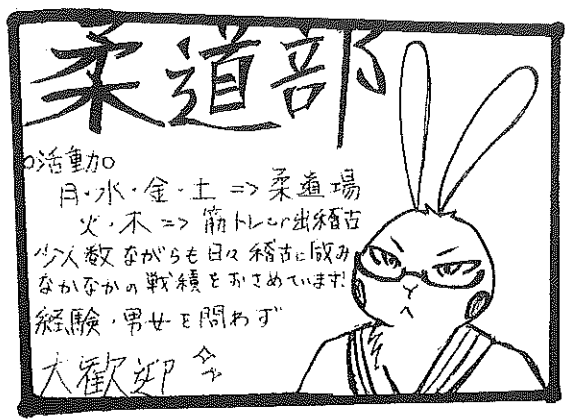 柔道部
○活動○
月・水・金・土 => 柔道場
火・木 => 筋トレor出稽古
少人数ながらも日々稽古に励み
なかなかの戦績をおさめています!
経験・男女を問わず
大歓迎